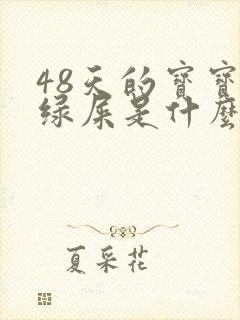 48天的寳寳
绿屎是什麽
夏采花